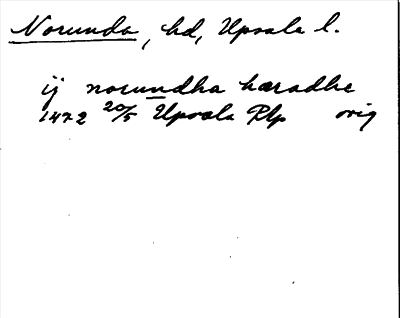 Norunda, hd, Upsala l.
ij norundha hæradhe
1472 20/5 Upsala Rlp orig